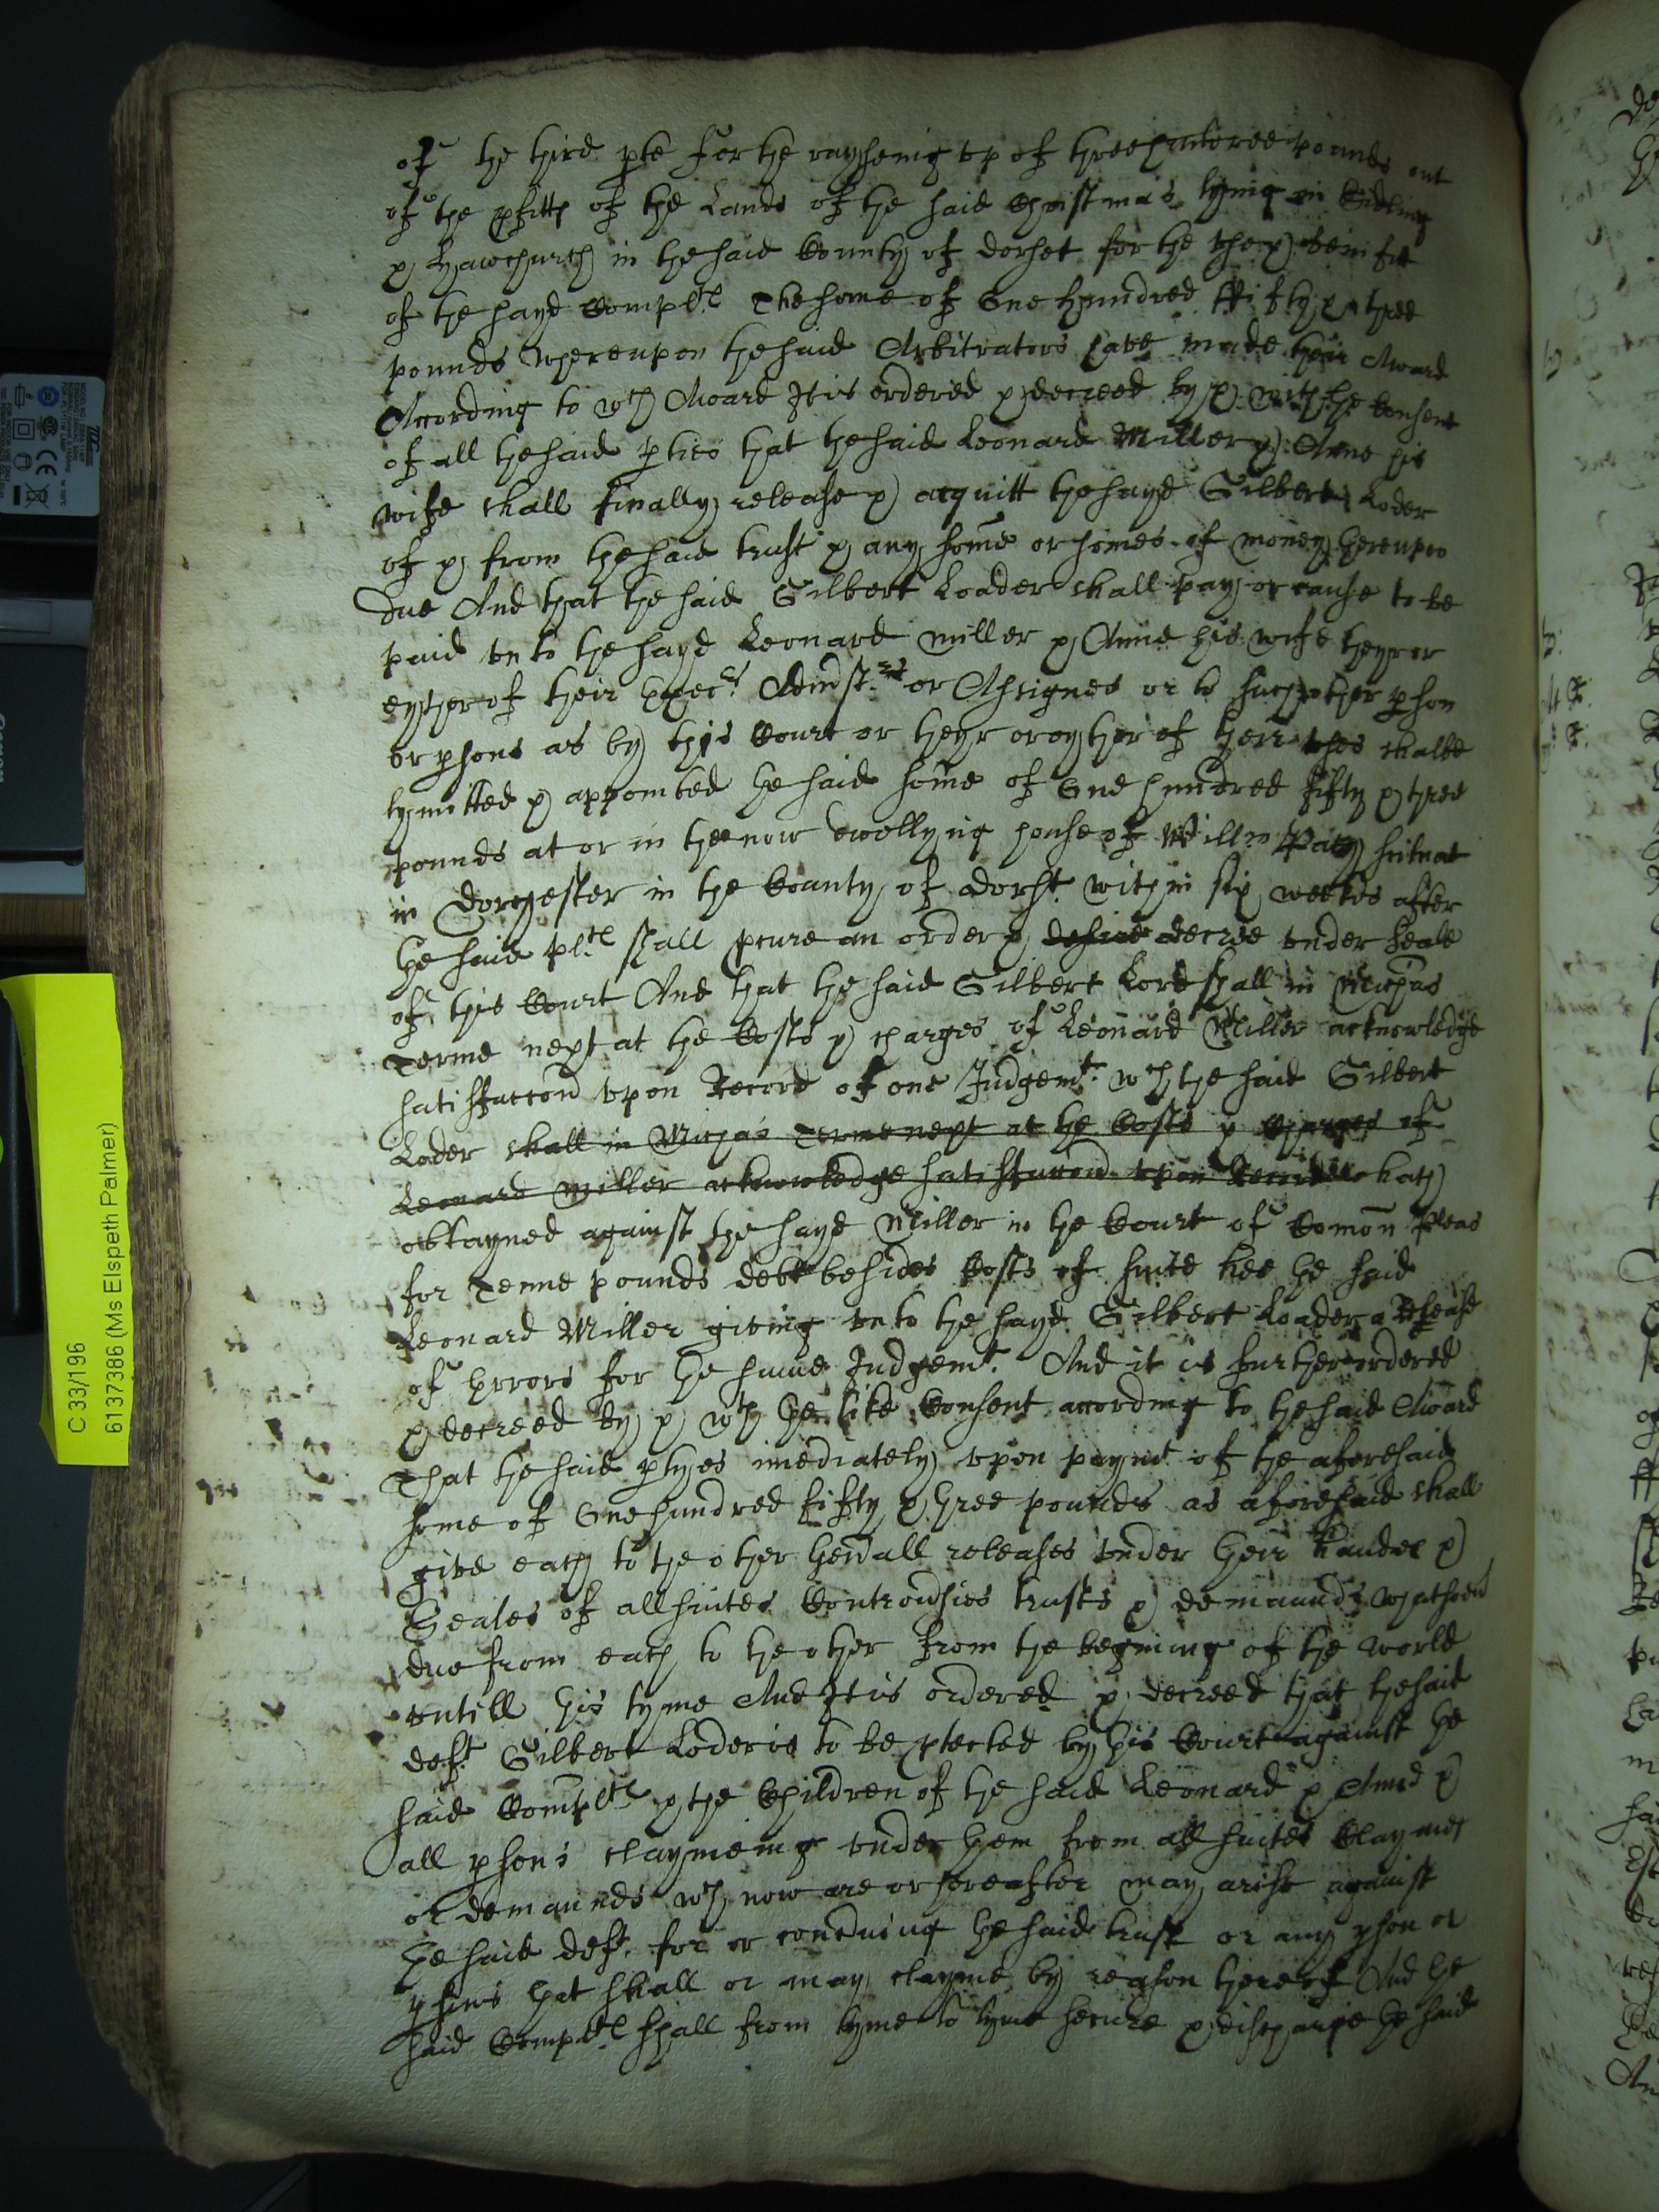 of the third pte for the raysheing up of threescoree pounds out
of the pfitts of the Lands of the said Christmas lying in Sidling
& Hawchurch in the said County of dorset for the use & benifitt
of the sayd Complts The some of One hundred ffifty & three
pounds Whereupon the said Arbitrators have made their Award
According to wch Award It is ordered & decreed by & with the Consent
of all the said pties that the said Leonard Miller & Anne his
wife shall finally release & acquitt the sayd Gilbert Loder
of & from the said trust & any some or somes of money hereupon
due And that the said Gilbert Loader shall pay or cause to be
paid unto the sayd Leonard miller & Anne his wife theyr or
eyther of their Execrs Admstrs or Assignes or to such other pson
or psons as by this Court or theyr or eyther of their uses shalbe
lymitted & appointed the said some of One hundred fifty & three
pounds at or in the now dwellying house of Willm Paty scituat
in Dorchester in the County of dorst within six weekes after
the said plts shall pcure an order & decree under seale
of this Court And that the said Gilbert Lord shall in Michas
Terme next at the Costs & charges of Leonard Miller acknowledge
satisfaccon upon Record of one Judgemt wch the said Gilbert
Loder shall in Michas Terme next at the Costs & Charges of
Leonard Miller acknowledge satisfaccon upon Record hath
obtayned against the sayd Miller in the Court of Comon Pleas
for Tenne pounds debt besides Costs of suite hee the said
Leonard Miller giving unto the sayd Gilbert Loader a Release
of Errors for the same Judgemt And it is further ordered
& decreed by & wth the like Consent according to the said Award
That the said ptyes imediately upon paymt of the aforesaid
some of One hundred fifty & three pounds as aforesaid shall
give each to the other genall releases under their handes &
Seales of all suites Controvsies trusts & demaunds whatsoevr
due from each to the other from the begining of the world
untill this tyme And It is ordered & decreed that the said
deft Gilbert Loder is to be ptected by this Court against the
said Complts & the Children of the said Leonard & Anne &
all psons claymeing under them from all suites Claymes
or demaunds wch now are or hereafter may arise against
the said deft for or concerning the said trust or any pson or
psons that shall or may clayme by reason thereof And the
said Complts shall from tyme to tyme secure & discharge the said
C 33/196
6137386 (Ms Elspeth Palmer)